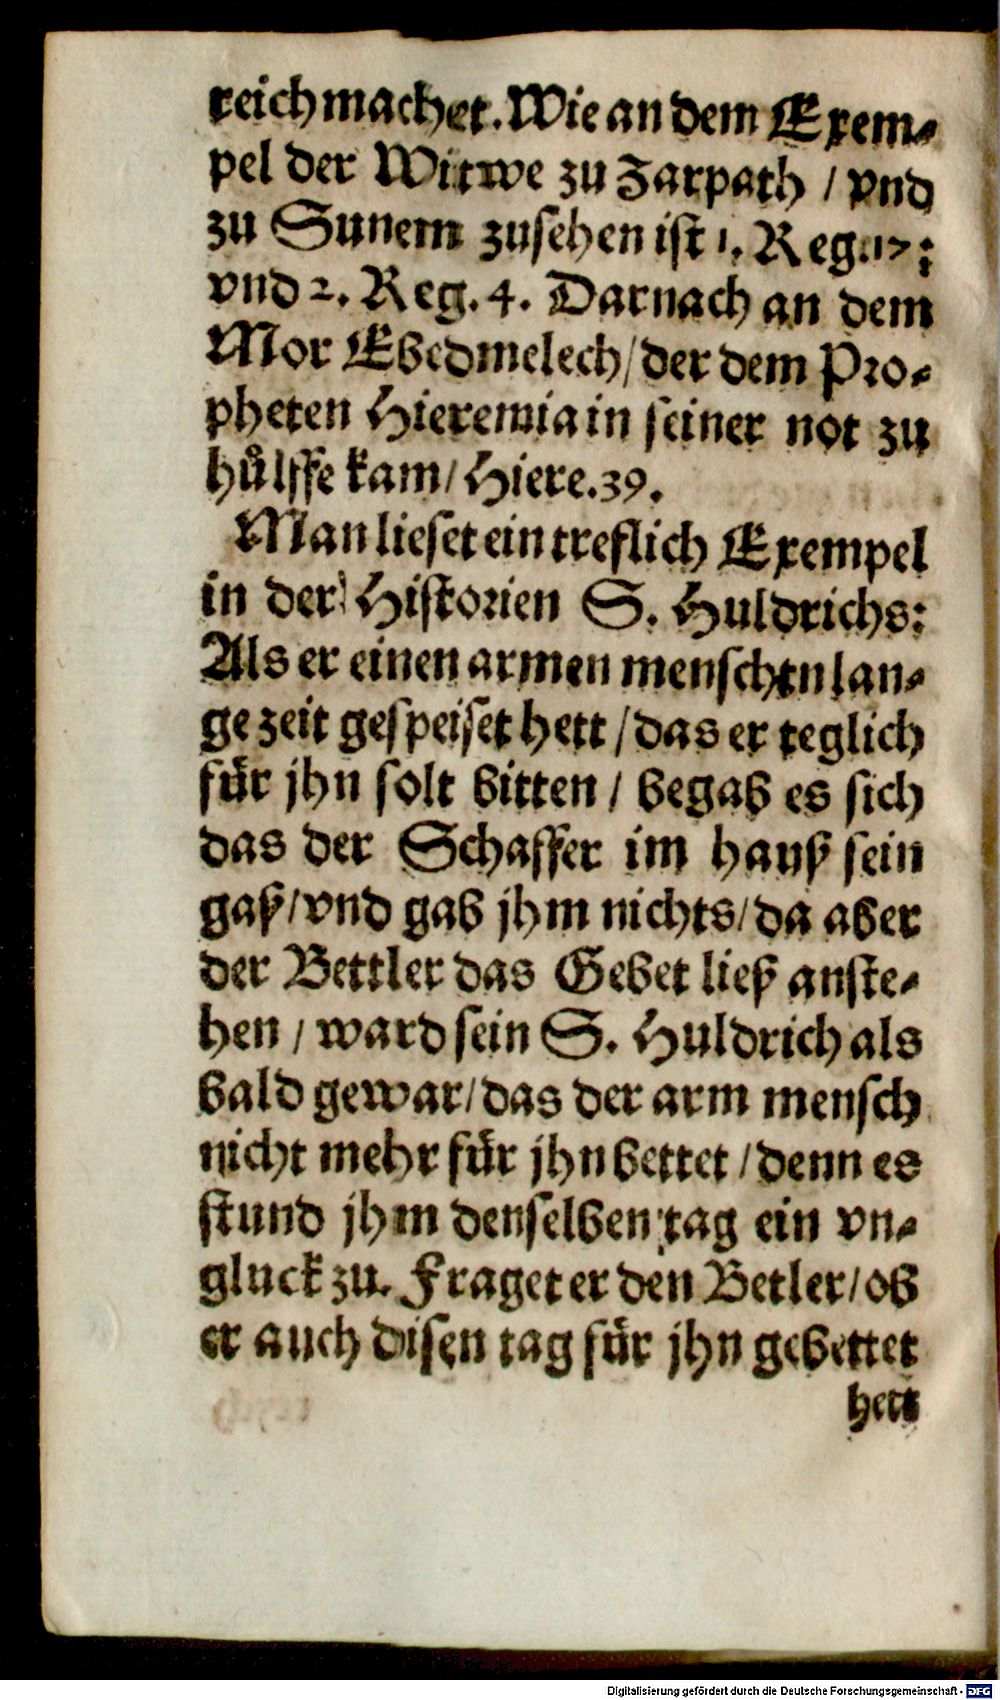 reich machet. Wie an dem Exem⸗
pel der Witwe zu Zarpath / vnd
zu Sunem zusehen ist 1. Reg. 17:
vnd 2. Reg. 4. Darnach an dem
Mor Ebedmelech / der dem Pro⸗
pheten Hieremia in seiner not zu
huͤlffe kam / Hiere. 39.
Man lieset ein treflich Exempel
in der Historien S. Huldrichs:
Als er einen armen menschen lan⸗
ge zeit gespeiset hett / das er teglich
für jhn solt bitten / begab es sich
das der Schaffer im hauß sein
gaß / vnd gab jhm nichts / da aber
der Bettler das Gebet ließ anste⸗
hen / ward sein S. Huldrich als
bald gewar / das der arm mensch
nicht mehr für jhn bettet / denn es
stund jhm denselben tag ein vn⸗
gluck zu. Fraget er den Betler / ob
er auch disen tag für jhn gebettet
hett
Digitalisierung gefördert durch die Deutsche Forschungsgemeinschaft - DFG